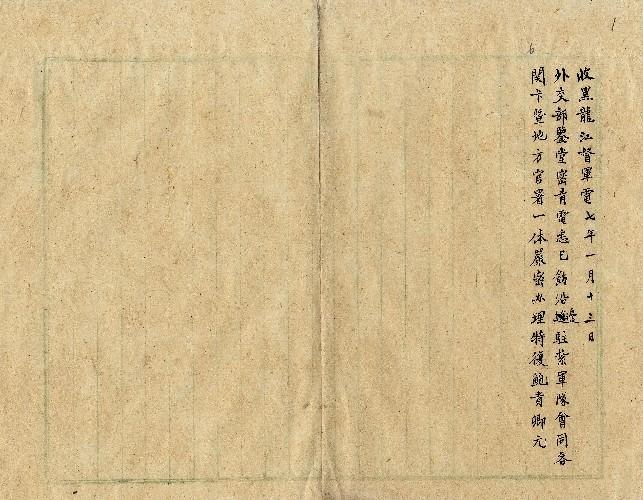 1
6
收黑龍江督軍電七年一月十三日
外交部鑒堂密青電悉已飭沿邊駐紮軍隊會同各
関卡暨地方官署一体嚴密办理特復鮑貴卿元